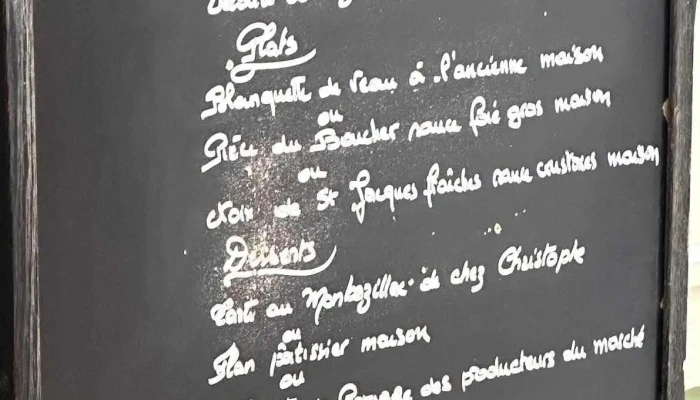 Plats
Blanquette de veau à l'ancienne maison
ou
Pièce du Boucher sauce foie gros maison
ou
Noix de St Jacques fraîches sauce crustacés maison
Desserts
Tarte au Monbazillac de chez Christophe
ou
Flan pâtissier maison
ou
Fromage des producteurs du marché